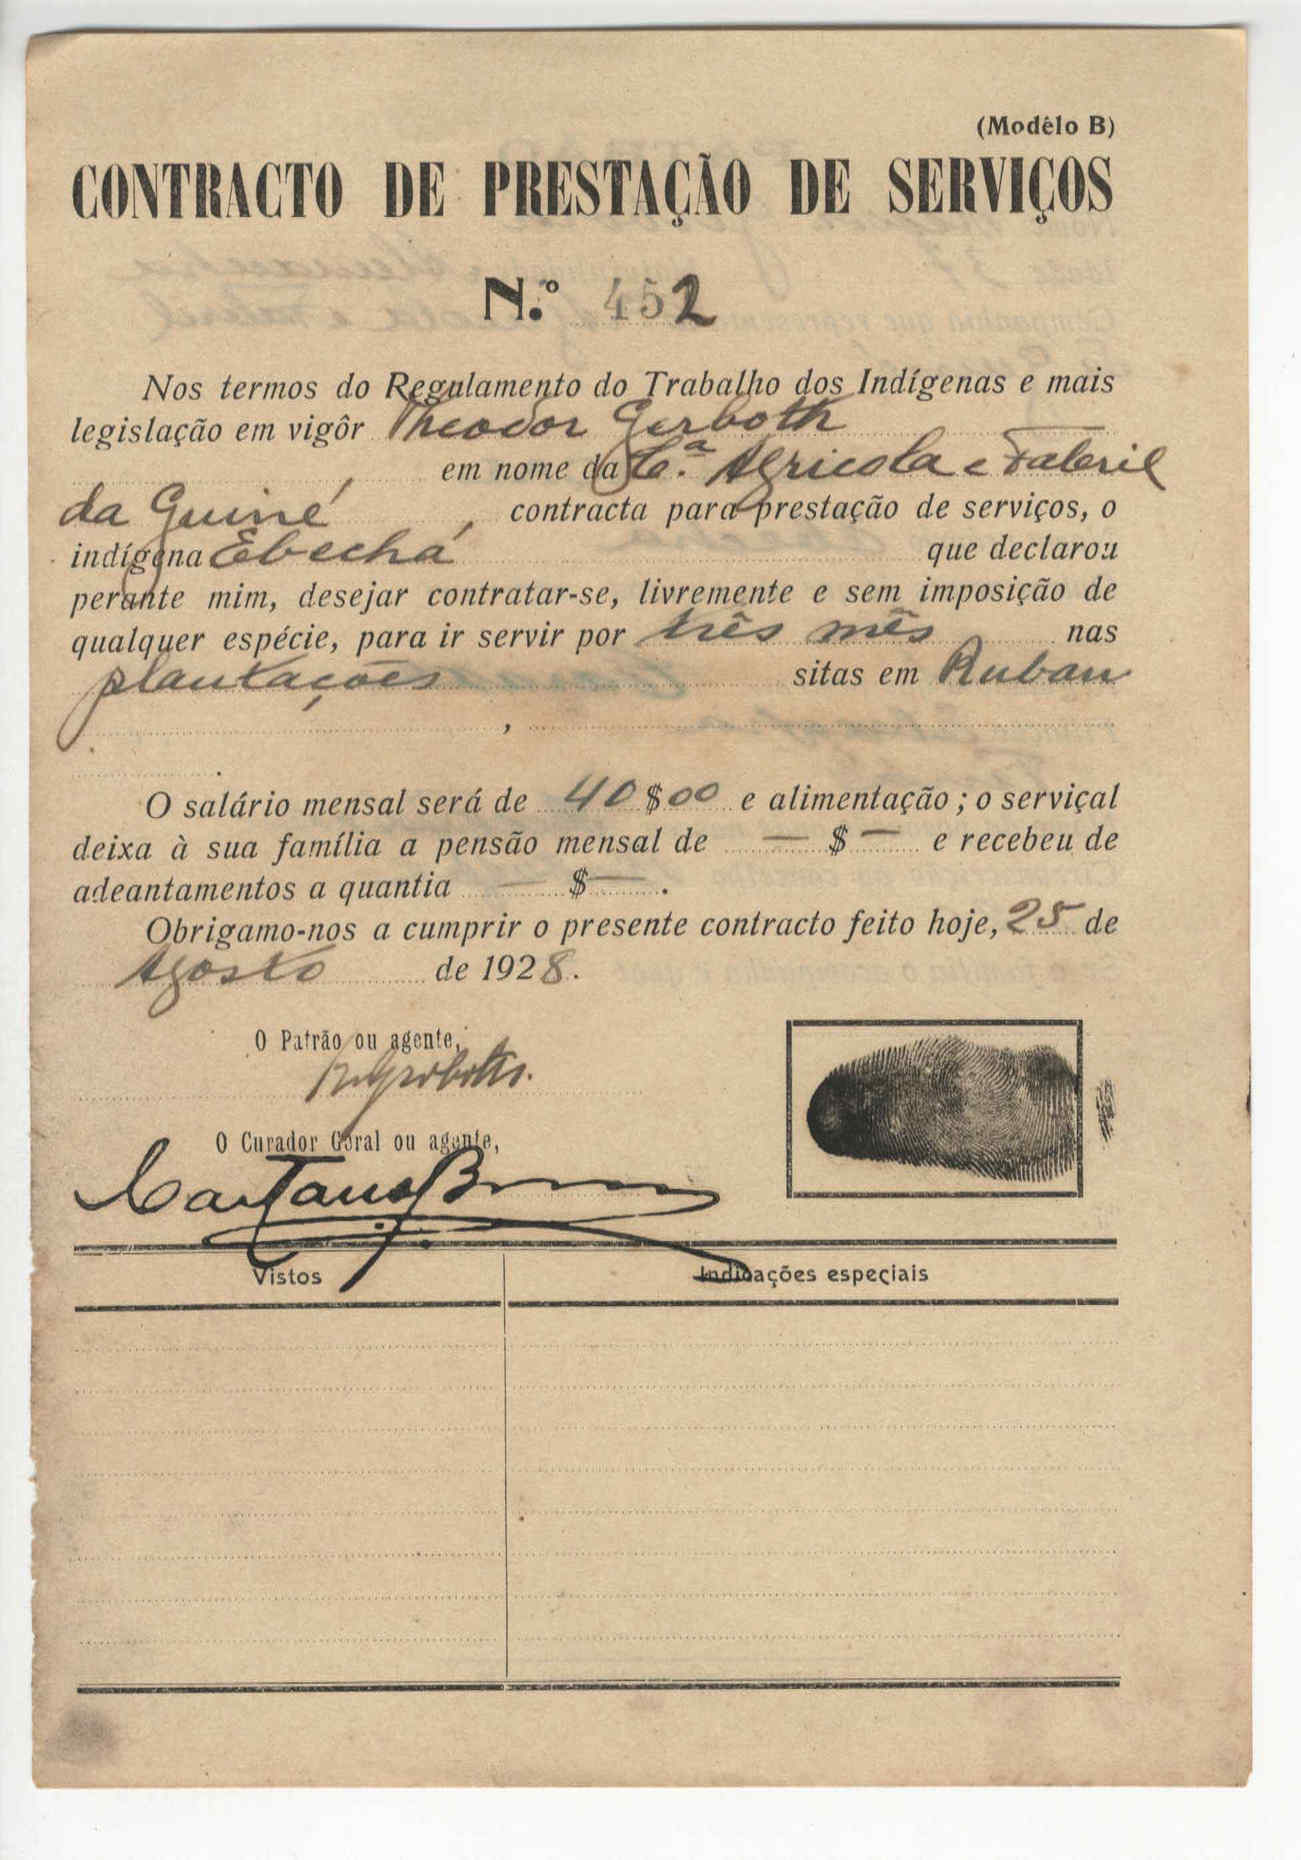 (Modêlo B)
CONTRACTO DE PRESTAÇÃO DE SERVIÇOS
N.º 452
Nos termos do Regulamento do Trabalho dos Indígenas e mais
legislação em vigôr Theodor Gerboth
, em nome da Cª. Agricola e Fabril
da Guiné, contracta para prestação de serviços, o
indígena Ebechá que declarou
perante mim, desejar contratar-se, livremente e sem imposição de
qualquer espécie, para ir servir por três mês nas
plantações sitas em Ruban
,
.
O salário mensal será de 40$00 e alimentação; o serviçal
deixa à sua família a pensão mensal de —$— e recebeu de
adeantamentos a quantia —$—.
Obrigamo-nos a cumprir o presente contracto feito hoje, 25 de
Agosto de 1928.
O Patrão ou agente,
O Curador Geral ou agente,
Caetano
Vistos
Indicações especiais